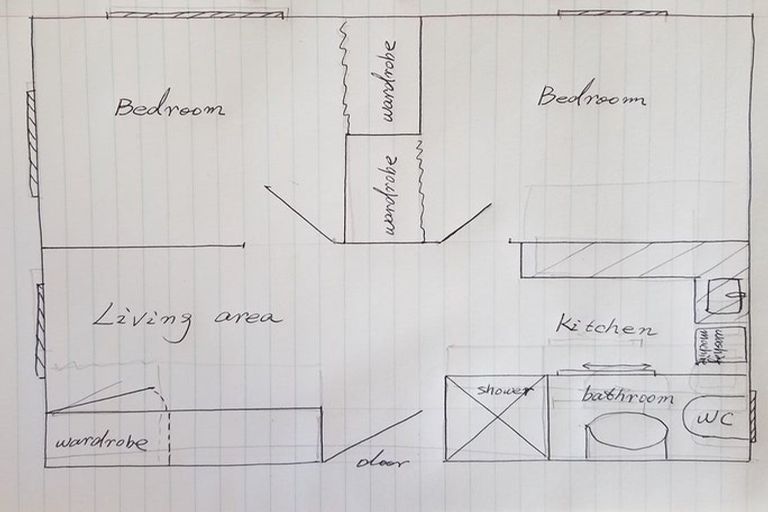 wardrobe
Bedroom
Bedroom
wardrobe
Living area
Kitchen
machine
shower
bathroom
WC
wardrobe
door